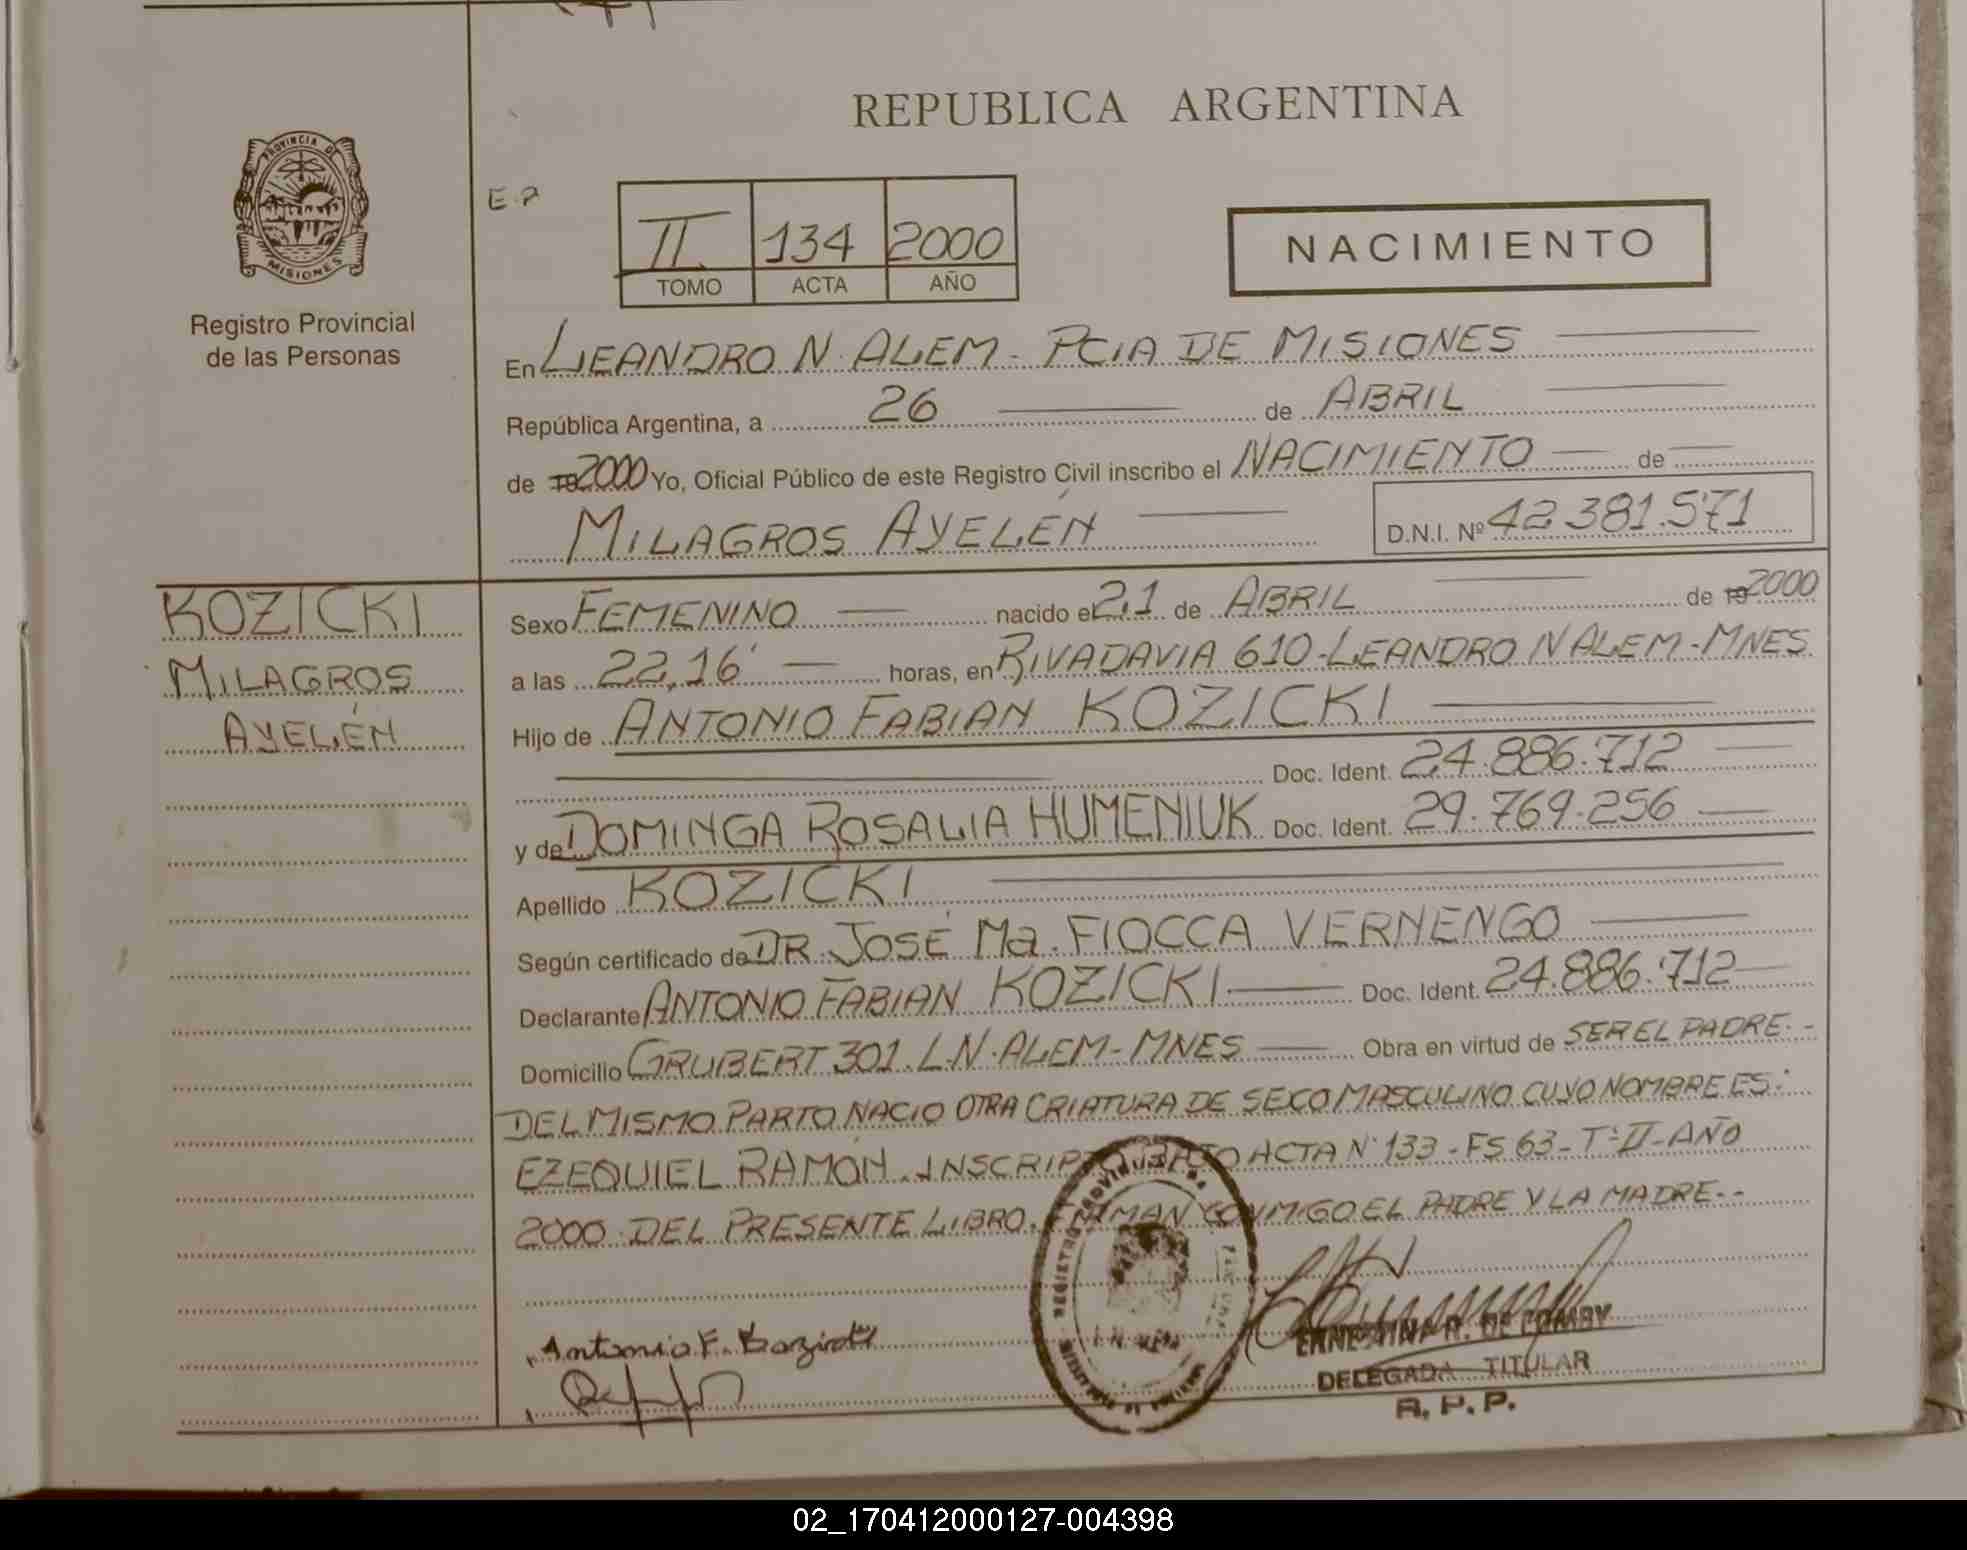 REPUBLICA ARGENTINA
PROVINCIA DE
MISIONES
Registro Provincial
de las Personas
II 134 2000
TOMO ACTA AÑO
NACIMIENTO
En LEANDRO N. ALEM - PCIA DE MISIONES
República Argentina, a 26 de ABRIL
de 19 2000 Yo, Oficial Público de este Registro Civil inscribo el NACIMIENTO de
MILAGROS AYELÉN D.N.I. Nº 42.381.571
KOZICKI
MILAGROS
AYELÉN
Sexo FEMENINO nacido el 21 de ABRIL de 19 2000
a las 22,16' horas, en RIVADAVIA 610-LEANDRO N ALEM-MNES.
Hijo de ANTONIO FABIAN KOZICKI
Doc. Ident. 24.886.712
y de DOMINGA ROSALIA HUMENIUK Doc. Ident. 29.769.256
Apellido KOZICKI
Según certificado de DR. JOSÉ Ma. FIOCCA VERNENGO
Declarante ANTONIO FABIAN KOZICKI Doc. Ident. 24.886.712
Domicilio GRUBERT 301. L.N. ALEM-MNES Obra en virtud de SER EL PADRE.-
DEL MISMO PARTO NACIO OTRA CRIATURA DE SEXO MASCULINO CUYO NOMBRE ES:
EZEQUIEL RAMÓN. INSCRIPTO BAJO ACTA Nº 133-FS 63-Tº II-AÑO
2000 DEL PRESENTE LIBRO. FIRMAN CONMIGO EL PADRE Y LA MADRE.-
Antonio F. Kozicki
ERNESTINA R. DE COMBY
DELEGADA TITULAR
R. P. P.
02_170412000127-004398